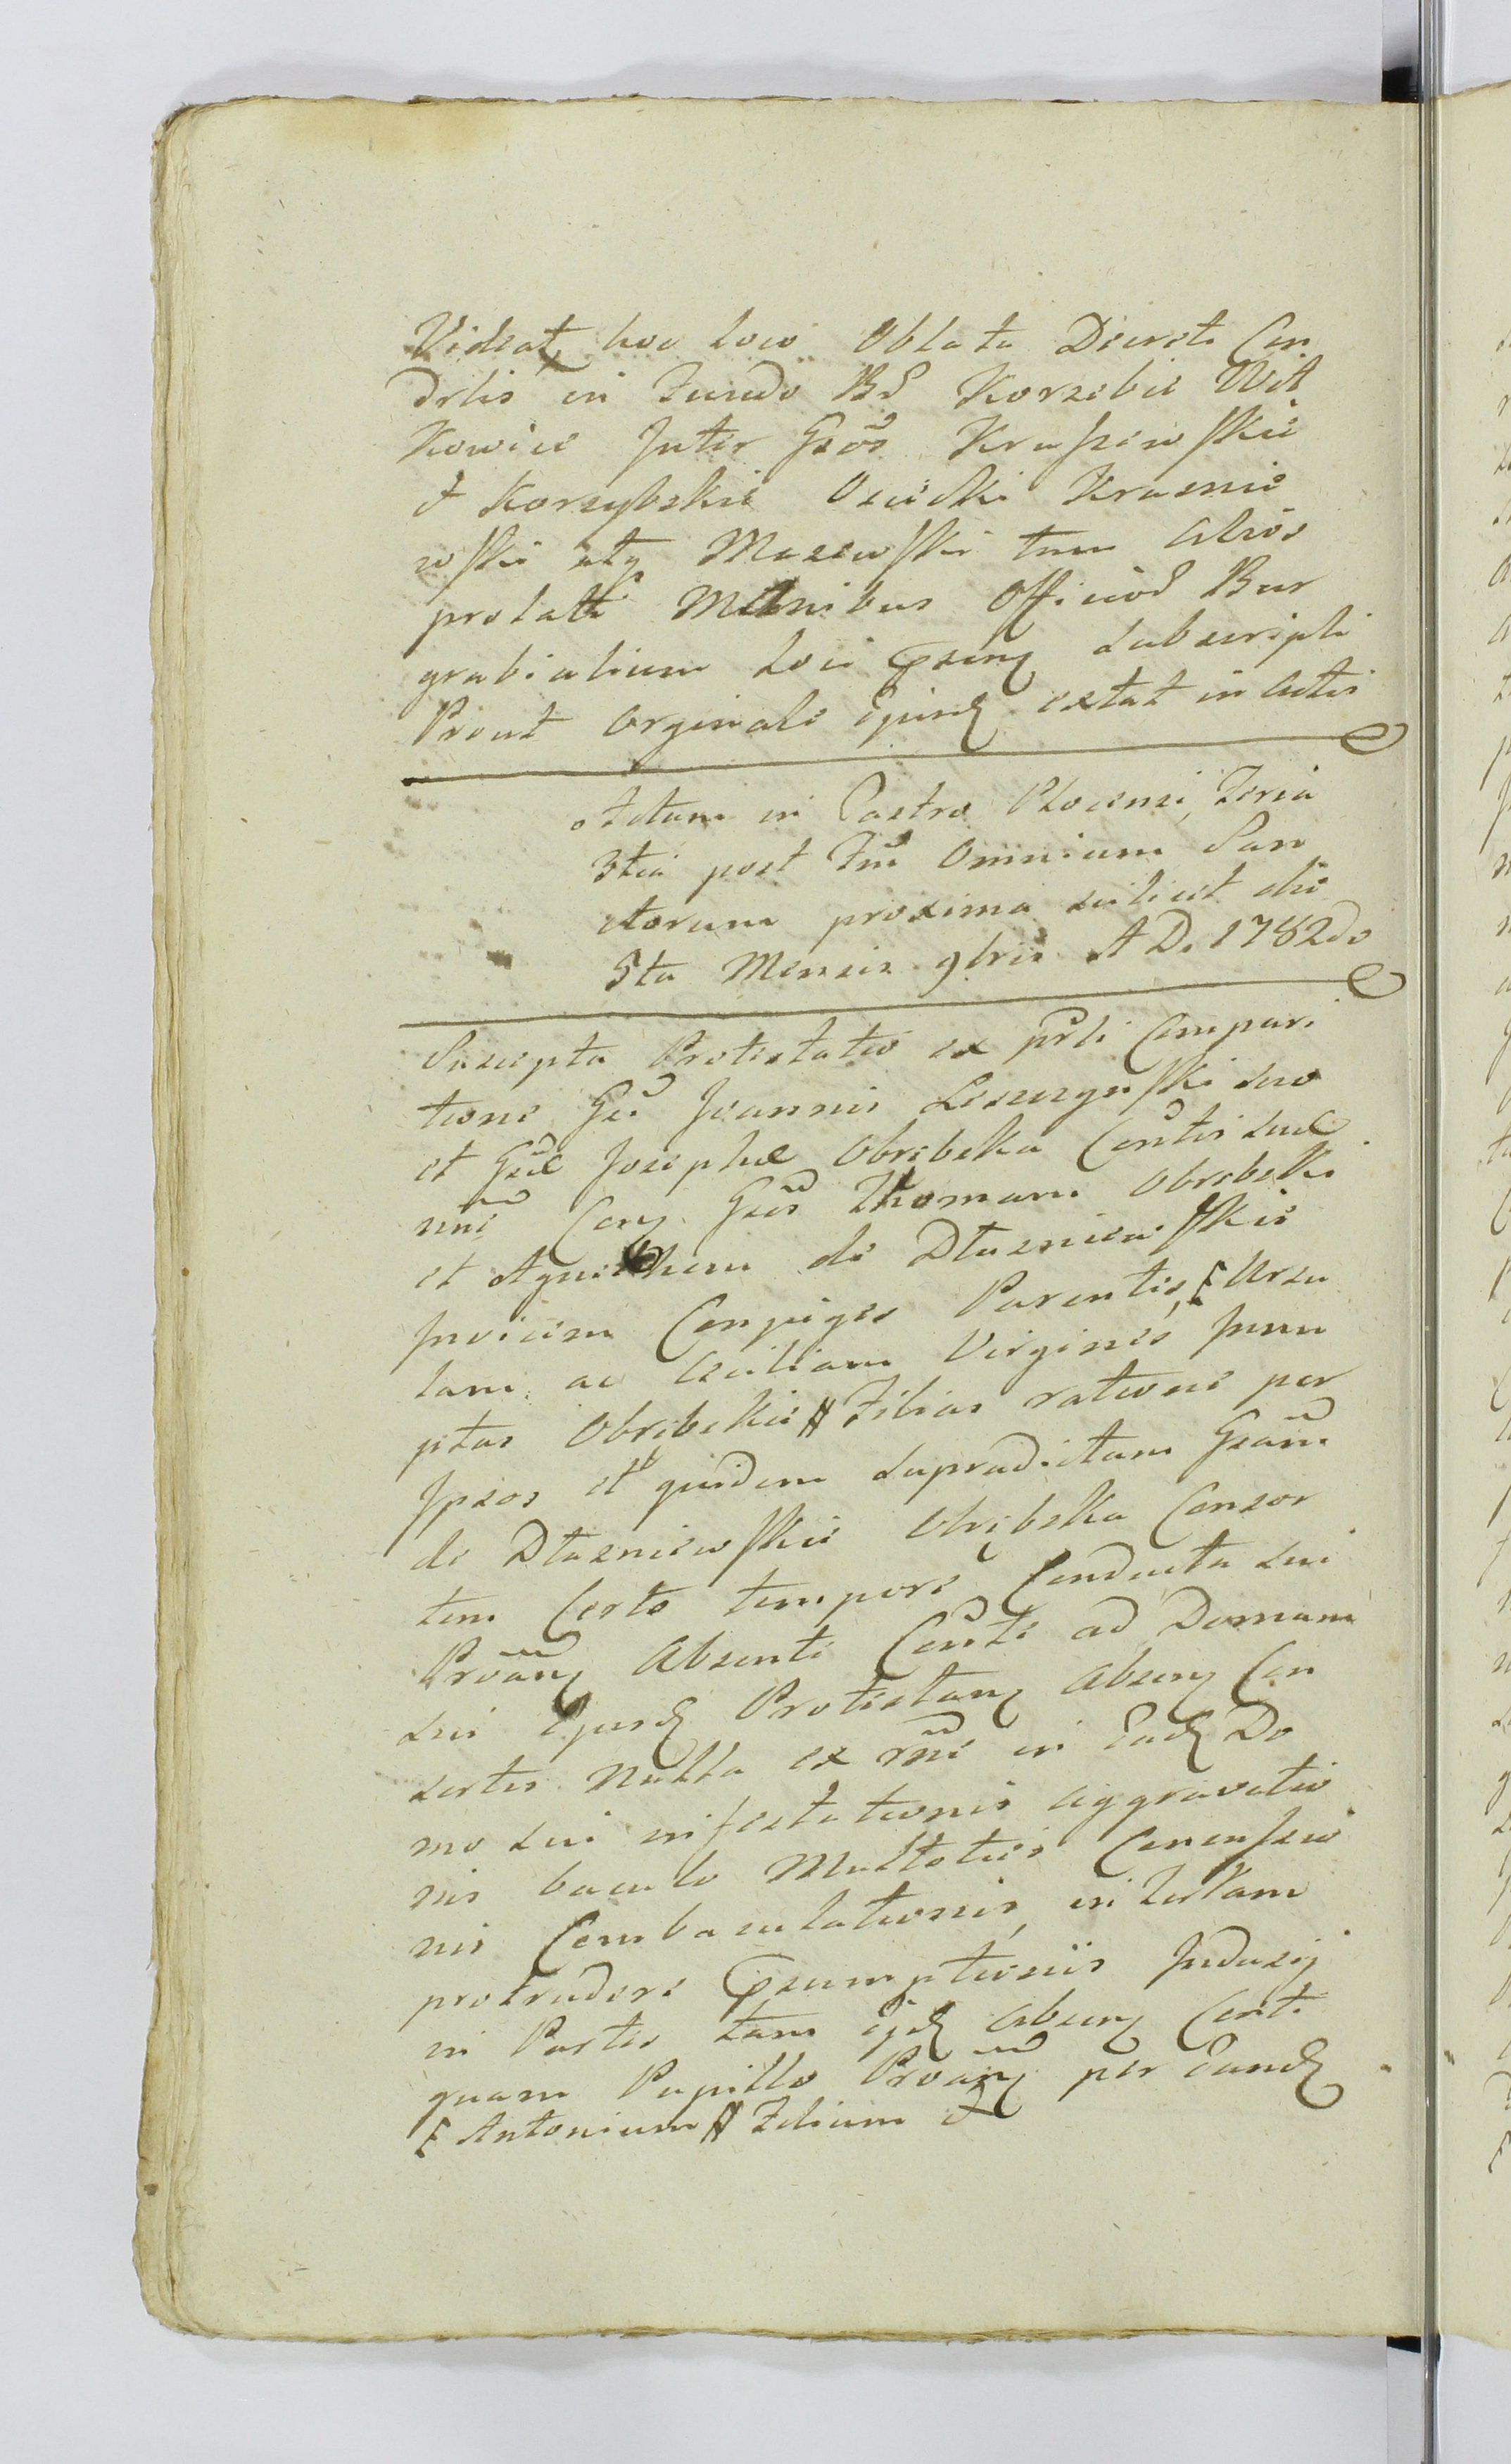 Videat hoc loco Oblata Decreti Con
drlis in Fundo Bd Korzebie Wit
kowice Inter Gsos Kraszewskie
et Korzybskie Osiecki Krasnie
wski atq Mazewski tum Alios
prolati Manibus Officiod Bur
grabialium Loci psenq subscripti
Prout orginale Ejusd extat in Actis
Actum in Castro Plocensi, Feria
3tia post Fm Omnium San
ctorum proxima scilicet die
5ta Mensis 9bris A D. 1782do
Suscepta Protestatio ex prli Compari
tione Gsi Joannis Leszczynski suo
et Gsæ Josephæ Obrebska Conthis suæ
nne Conq Gsos Thomam Obrebski
et Agnethem de Dłuzniewskie
Invicem Conjuges Parentes, [ Ursu
lam ac Ceciliam Virgines Innu
ptas Obrebskie # Filias ratione per
Ipsos et quidem supradictam Gsam
de Dłuzniewskie Obrębska Consor
tem Certo tempore Conducta sui
Proanq Absenti Conthe ad Domum
sui Ejusd Protestanq Absenq Con
sortis Nulla ex rne in Ead Do
mo sui infestationis aggravatio
nis baculo Multoties Concussio
nis Combaculationis, in lectam
protrudere psumptionis Indusij
in Partes tam ejd Absenq Conthe
quam Pupillo Proanq per Eand
[ Antonium # Filium et